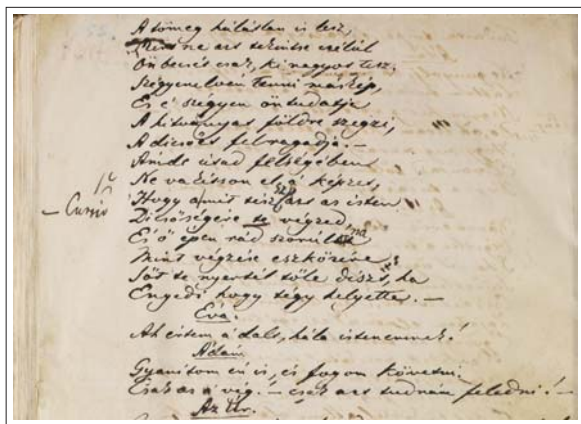 A tömeg hálátlan is lesz,
ne azt tekintse czélul
Önbecsét csak, ki nagyot tesz,
Szégyenelvén tenni máskép,
És e szégyen öntudatja
A hitványat földre szegzi,
A dicsőt felragadja. —
Ámde útad felségében
Ne vakitson el a képzet,
Hogy a mit téssz, azt az isten
Dicsőségére te végzed,
És ő épen rád szorúlna
Mint végzése eszközére:
Sőt te nyertél tőle díszt, ha
Engedi hogy tégy helyette. —
Éva.
Ah értem a dalt, hála istenemnek!
Ádám.
Gyanitom én is, és fogom követni.
Csak az a vég! — csak azt tudnám feledni! —
Az Úr.